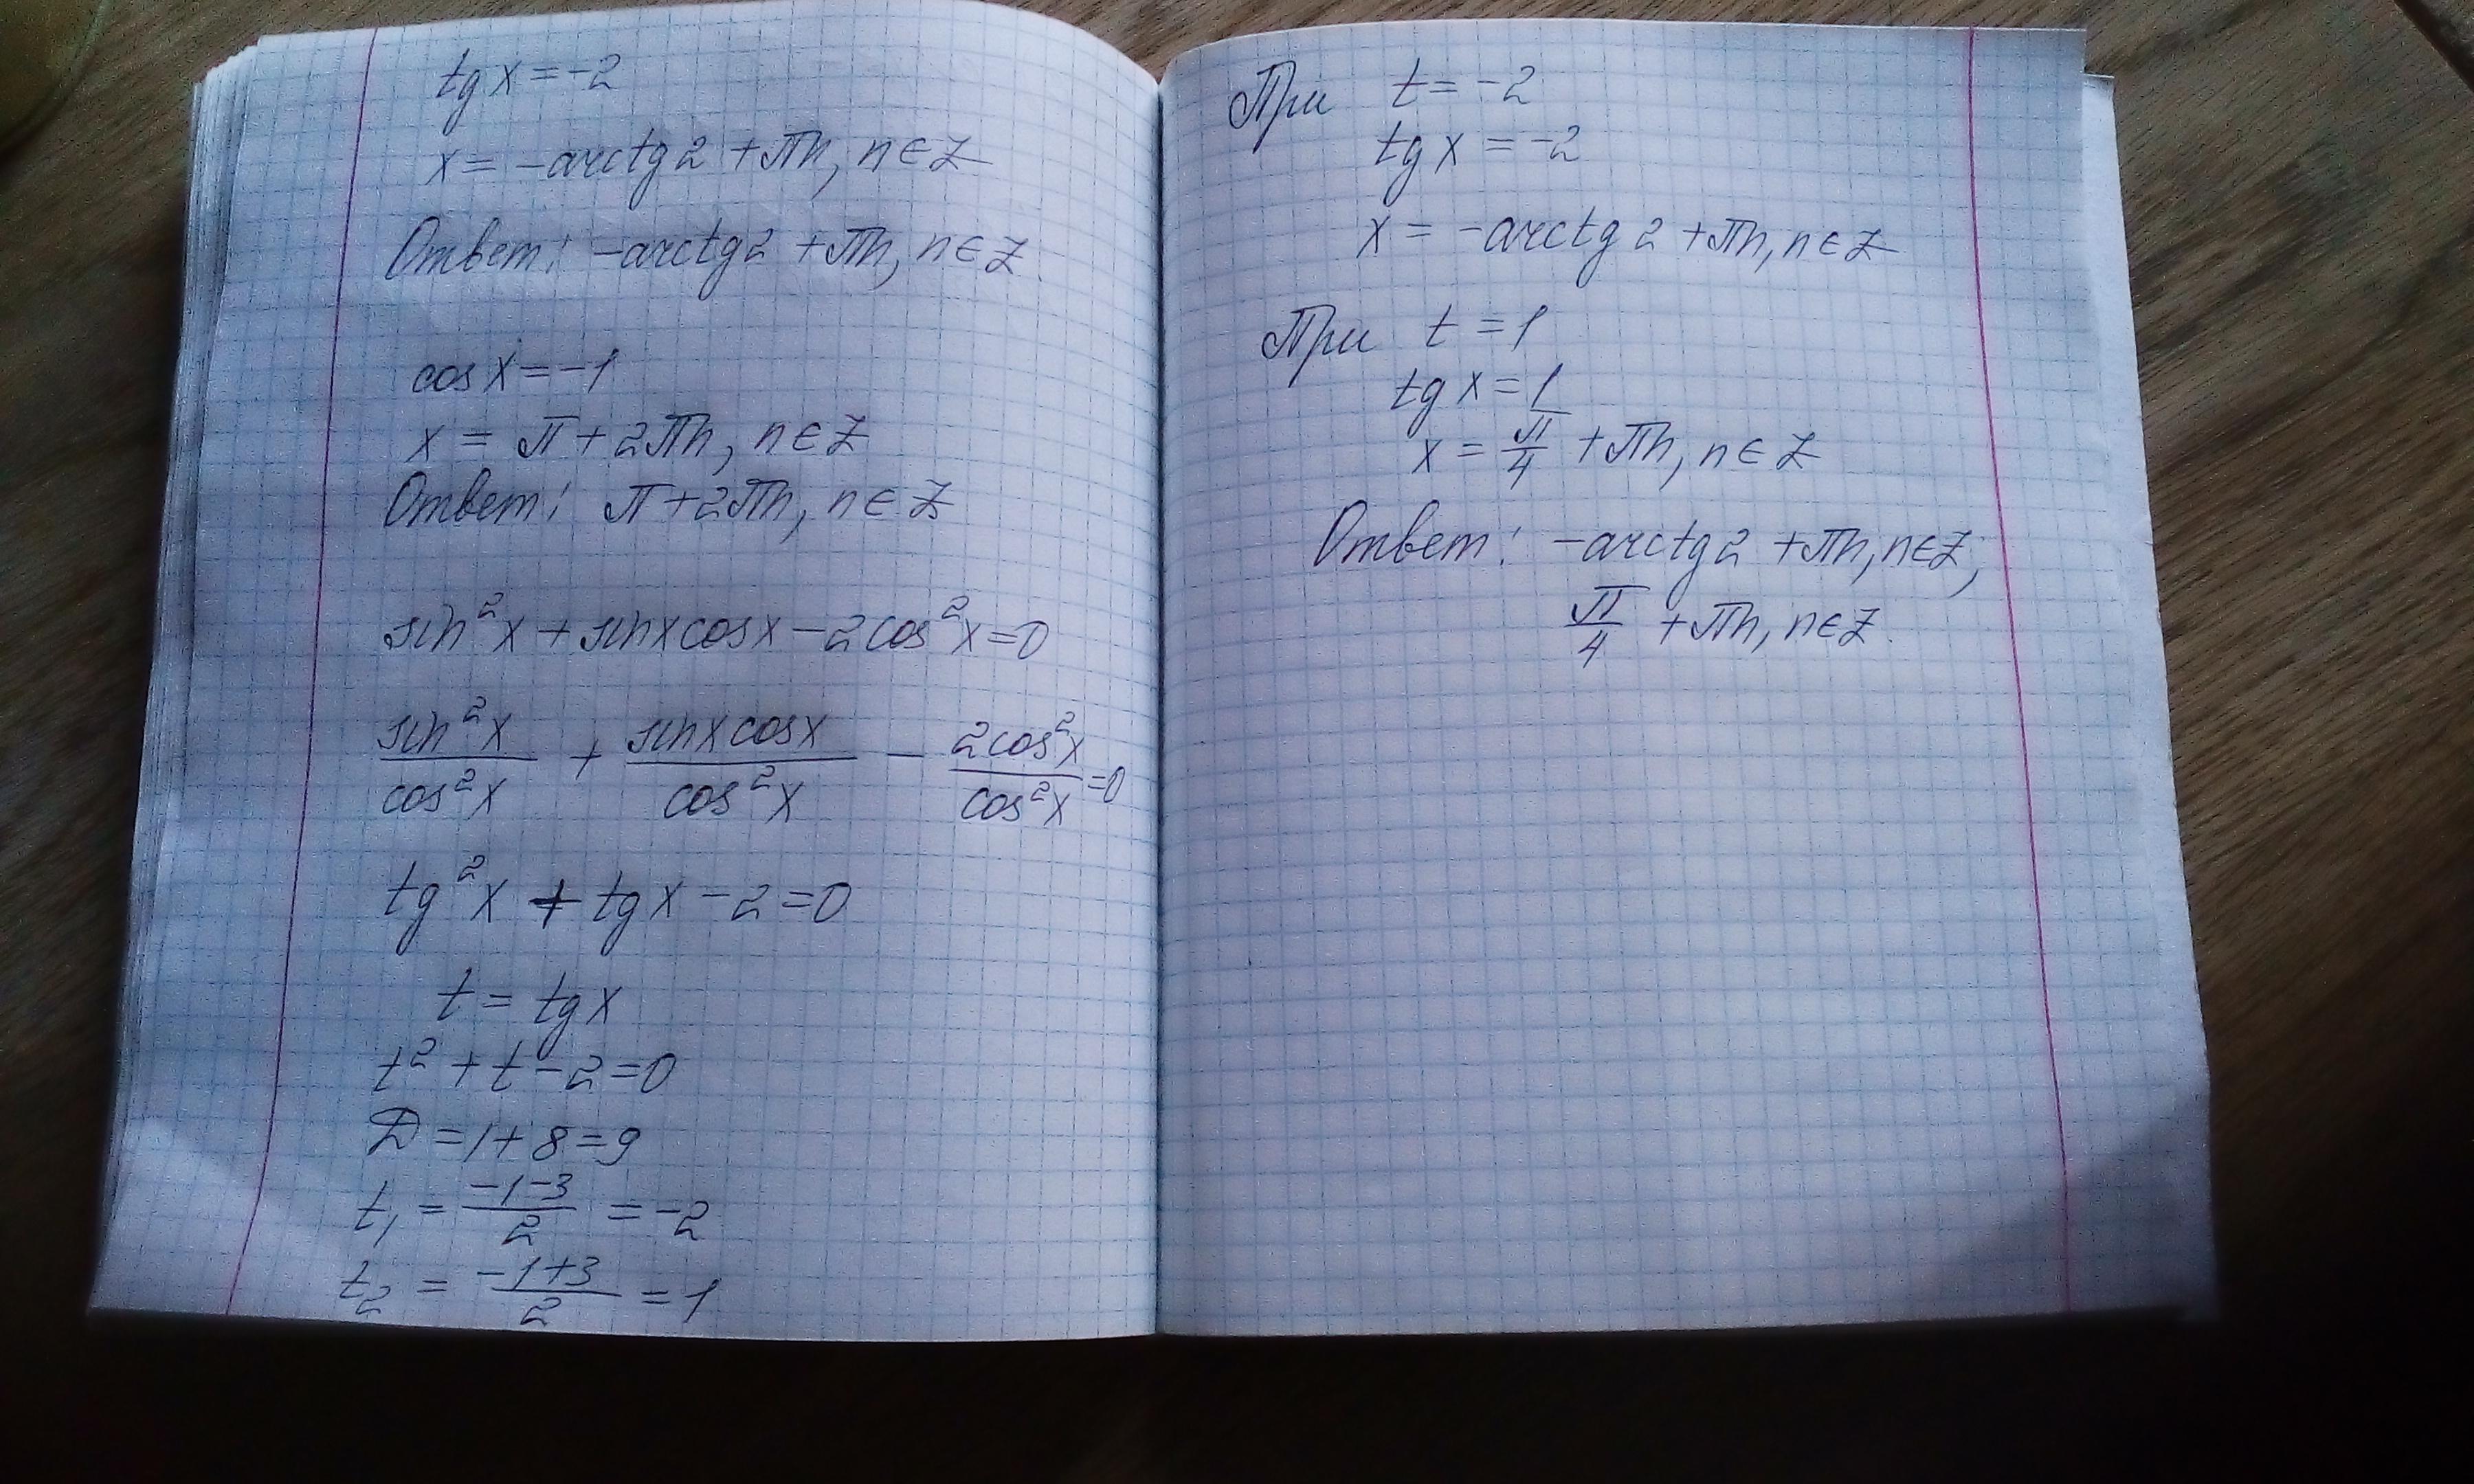 tg x = -2
x = -arctg 2 + πn, n ∈ Z
Ответ: -arctg 2 + πn, n ∈ Z.
cos x = -1
x = π + 2πn, n ∈ Z
Ответ: π + 2πn, n ∈ Z
sin²x + sin x cos x - 2cos²x = 0
sin²x/cos²x + sin x cos x/cos²x - 2cos²x/cos²x = 0
tg²x + tg x - 2 = 0
t = tg x
t² + t - 2 = 0
D = 1 + 8 = 9
t₁ = (-1-3)/2 = -2
t₂ = (-1+3)/2 = 1
При t = -2
tg x = -2
x = -arctg 2 + πn, n ∈ Z
При t = 1
tg x = 1
x = π/4 + πn, n ∈ Z
Ответ: -arctg 2 + πn, n ∈ Z;
π/4 + πn, n ∈ Z.